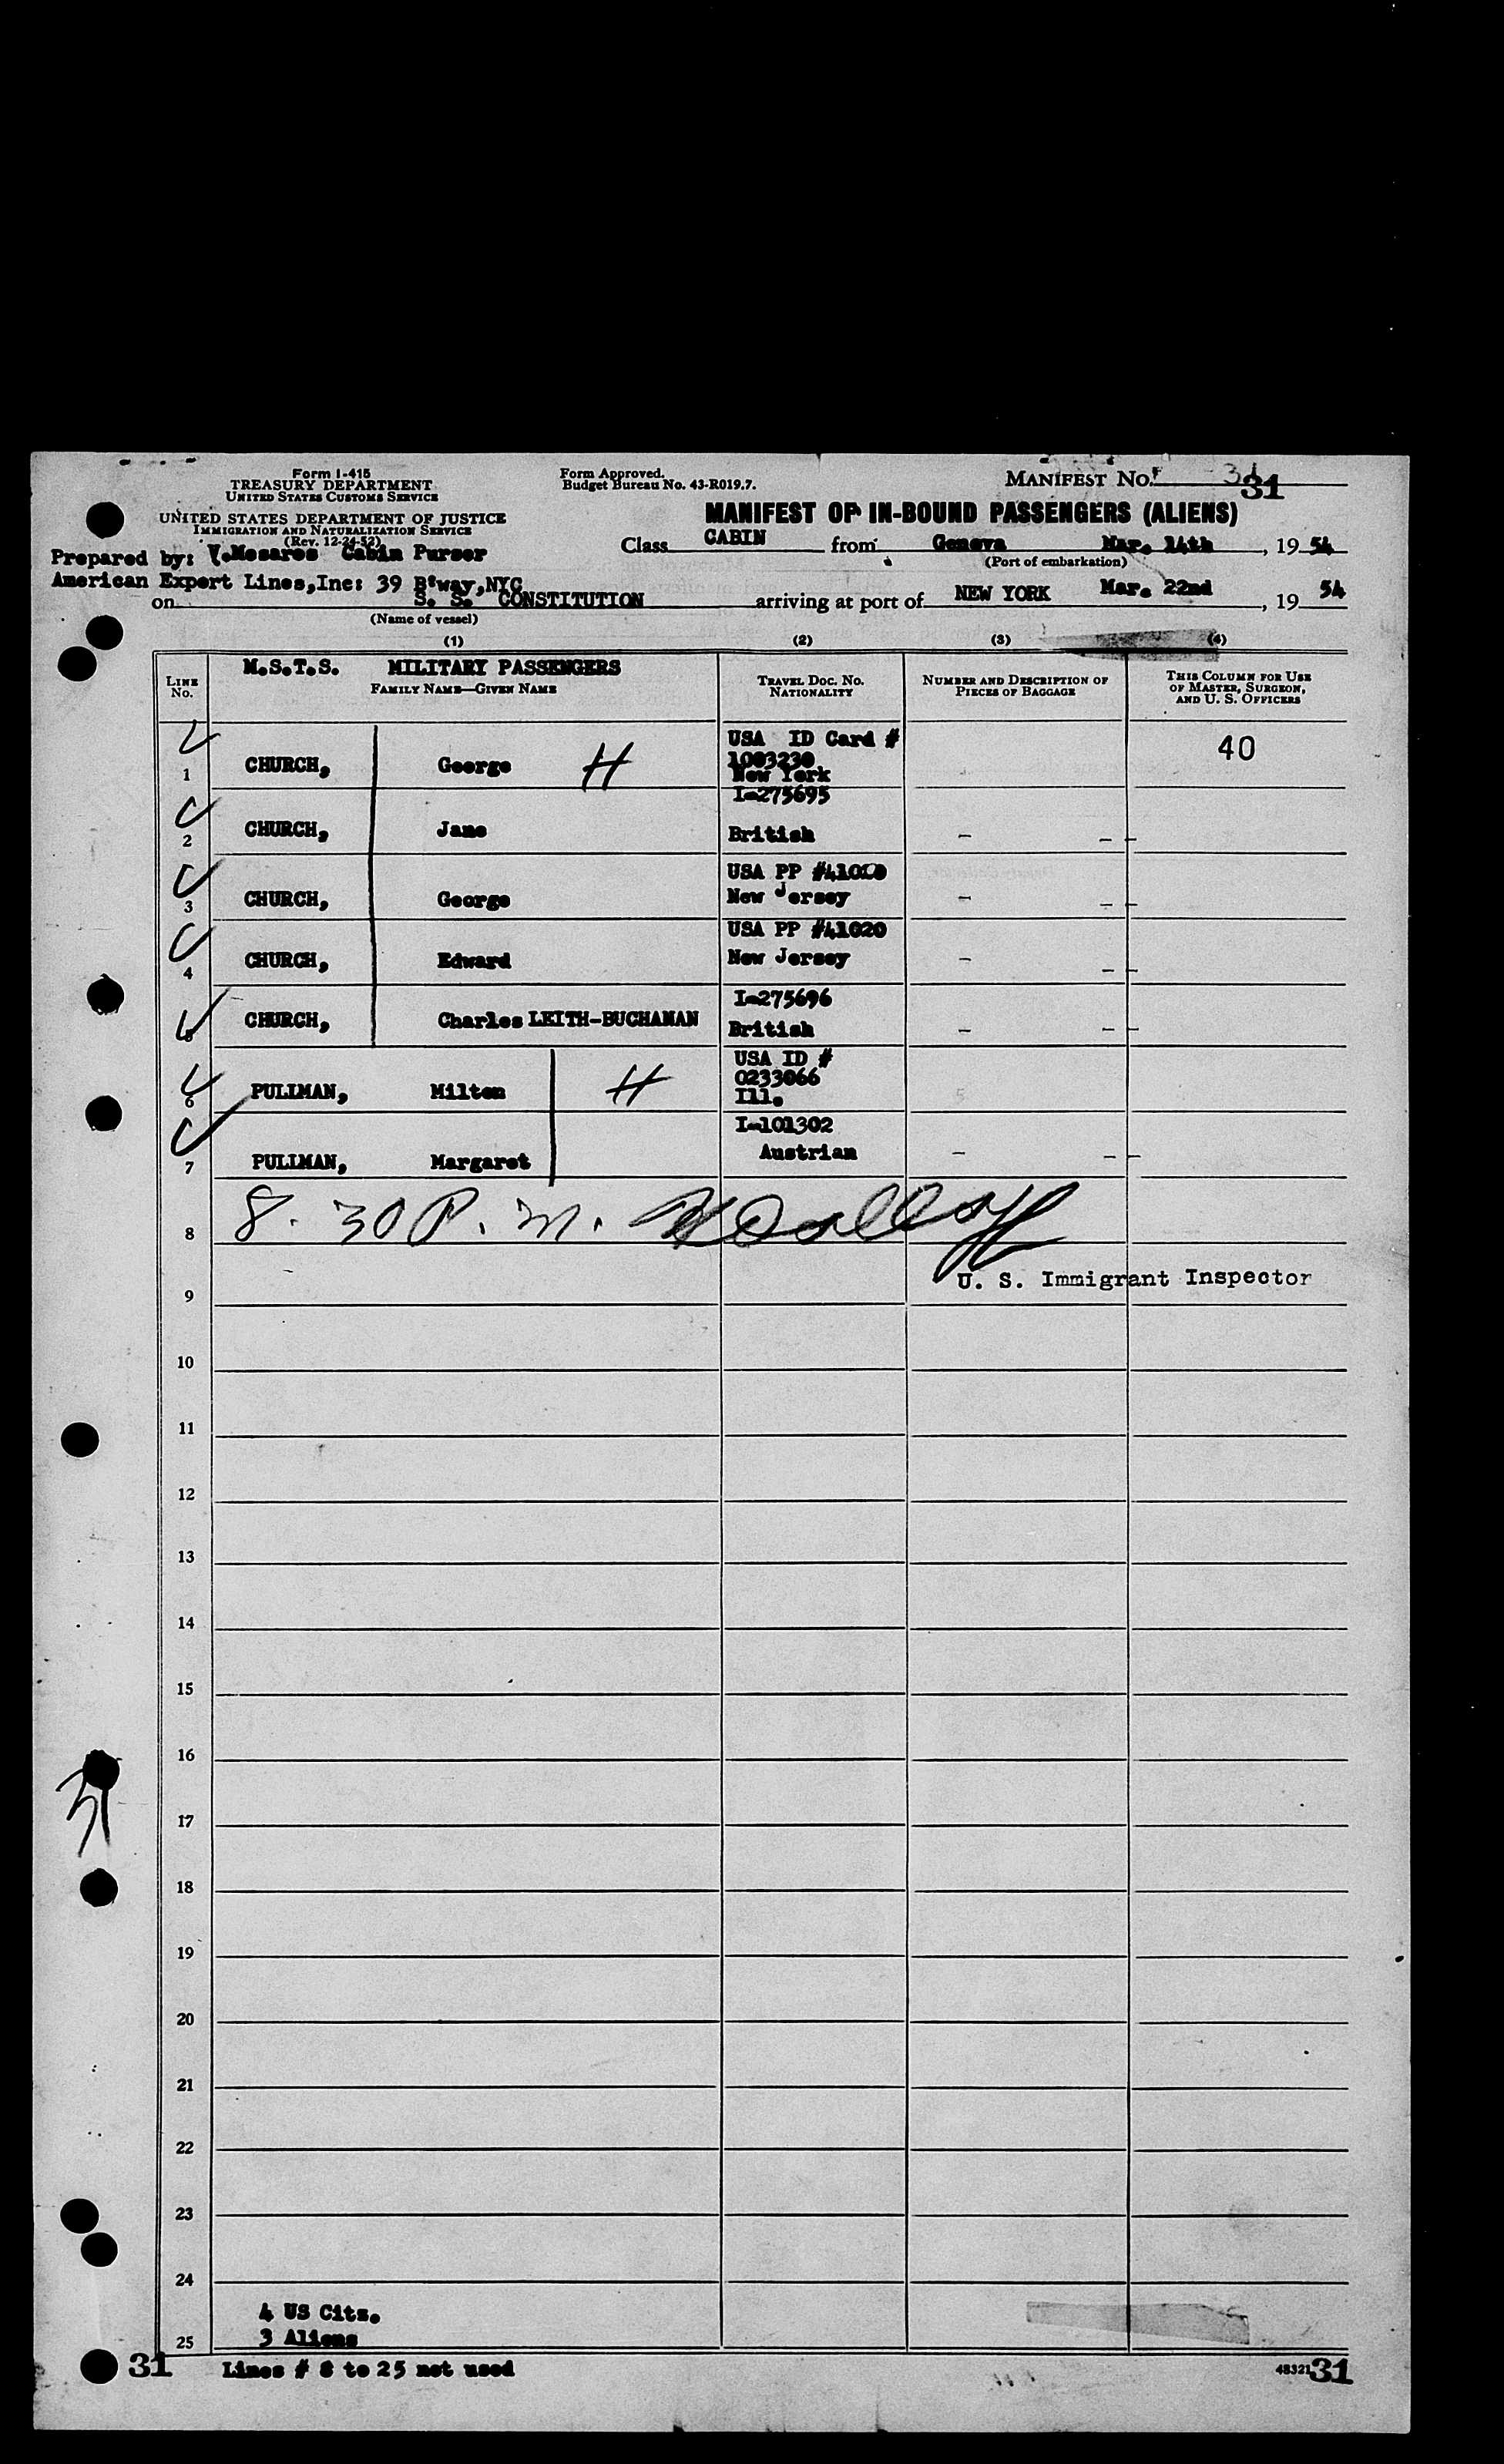 Form I-415
TREASURY DEPARTMENT
UNITED STATES CUSTOMS SERVICE
UNITED STATES DEPARTMENT OF JUSTICE
IMMIGRATION AND NATURALIZATION SERVICE
(Rev. 12-24-52)
Form Approved.
Budget Bureau No. 43-R019.7.
MANIFEST No. 31
MANIFEST OF IN-BOUND PASSENGERS (ALIENS)
Prepared by: V.Mesaros Cabin Purser
Class CABIN from Genova Mar. 14th, 19 54
(Port of embarkation)
American Export Lines,Inc: 39 B'way,NYC
on S. S. CONSTITUTION arriving at port of NEW YORK Mar. 22nd, 19 54
(Name of vessel)
(1) (2) (3) (4)
M.S.T.S. MILITARY PASSENGERS
LINE No.
FAMILY NAME—GIVEN NAME
TRAVEL DOC. No. NATIONALITY
NUMBER AND DESCRIPTION OF PIECES OF BAGGAGE
THIS COLUMN FOR USE OF MASTER, SURGEON, AND U. S. OFFICERS
1 CHURCH, George H USA ID Card # 1003230 New York 40
2 CHURCH, Jane I-275695 British - - -
3 CHURCH, George USA PP New Jersey - - -
4 CHURCH, Edward USA PP #41020 New Jersey - - -
5 CHURCH, Charles LEITH-BUCHANAN I-275696 British - - -
6 PULLMAN, Milton H USA ID # 0233066 Ill.
7 PULLMAN, Margaret I-101302 Austrian - - -
8 8.30 P.M.
U. S. Immigrant Inspector
9
10
11
12
13
14
15
16
17
31
18
19
20
21
22
23
24
4 US Citz.
25 3 Aliens
31 Lines # 8 to 25 not used
48321 31